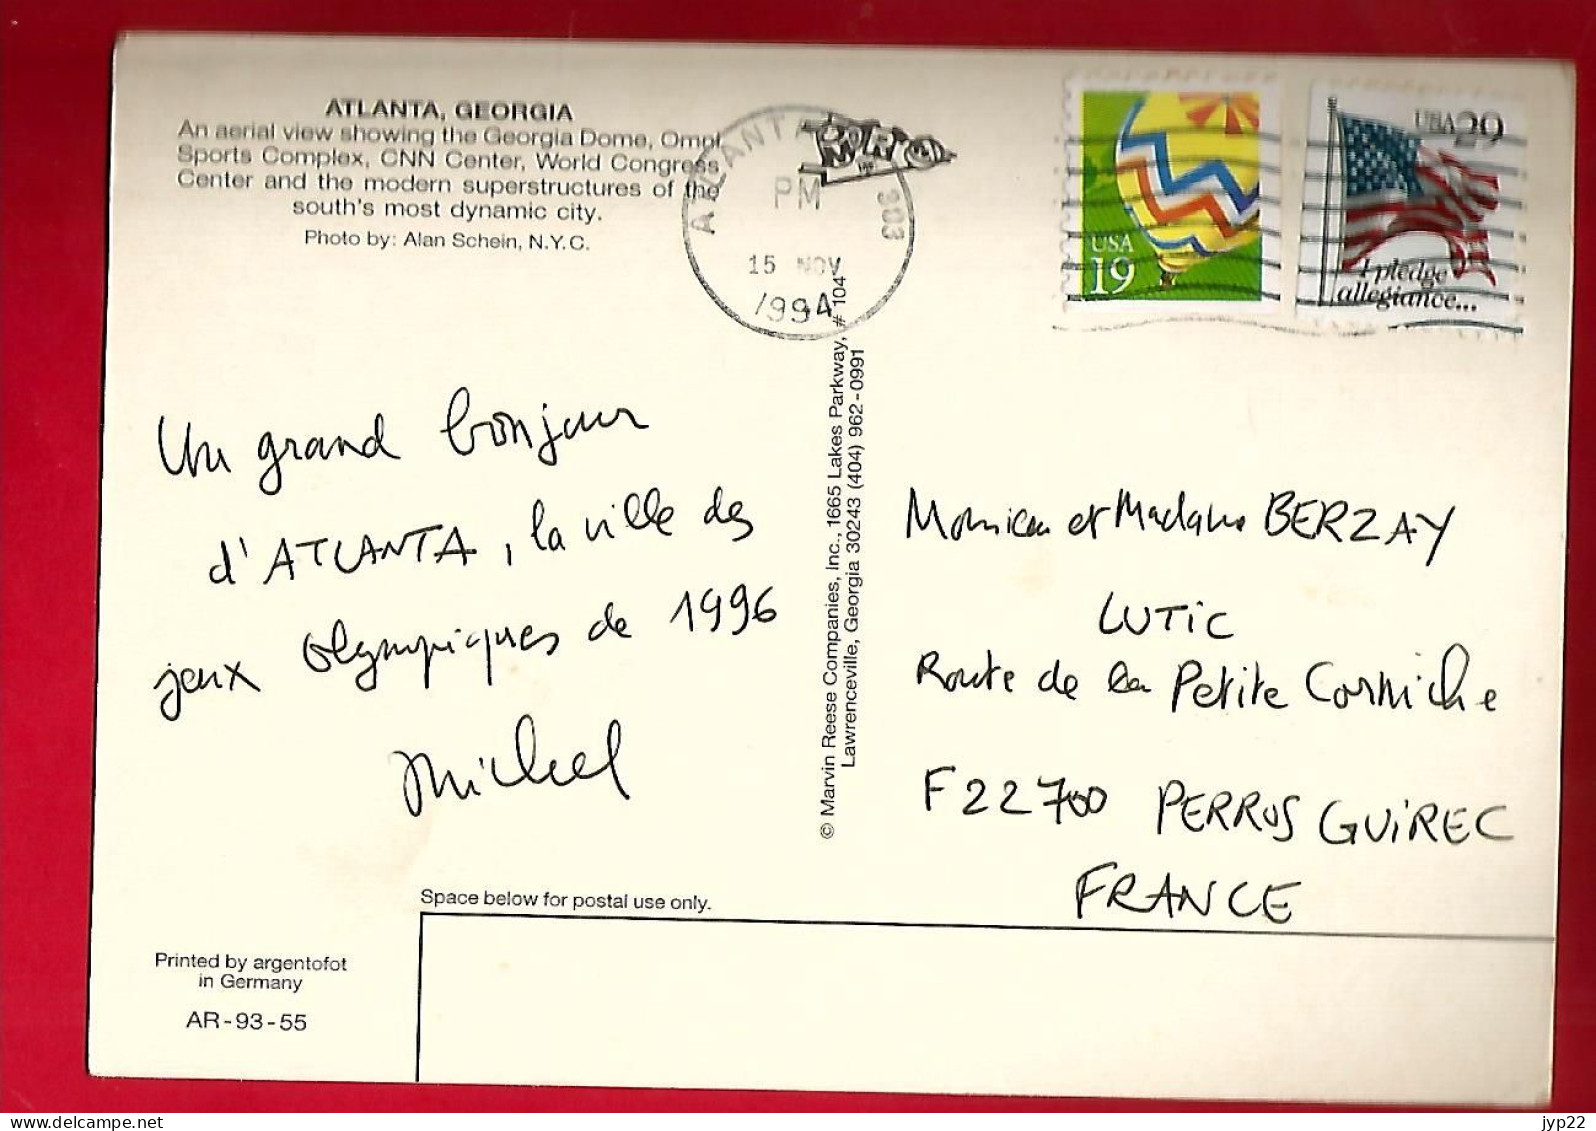 ATLANTA, GEORGIA
An aerial view showing the Georgia Dome, Omni
Sports Complex, CNN Center, World Congress
Center and the modern superstructures of the
south's most dynamic city.
Photo by: Alan Schein, N.Y.C.
ATLANTA 303
PM
15 NOV
1994
USA
19
USA 29
I pledge
allegiance...
Un grand bonjour
d'ATLANTA, la ville des
jeux olympiques de 1996
Michel
© Marvin Reese Companies, Inc., 1665 Lakes Parkway, # 104
Lawrenceville, Georgia 30243 (404) 962-0991
Monsieur et Madame BERZAY
LUTIC
Route de la Petite Corniche
F 22700 PERROS GUIREC
FRANCE
Space below for postal use only.
Printed by argentofot
in Germany
AR-93-55
jyp22